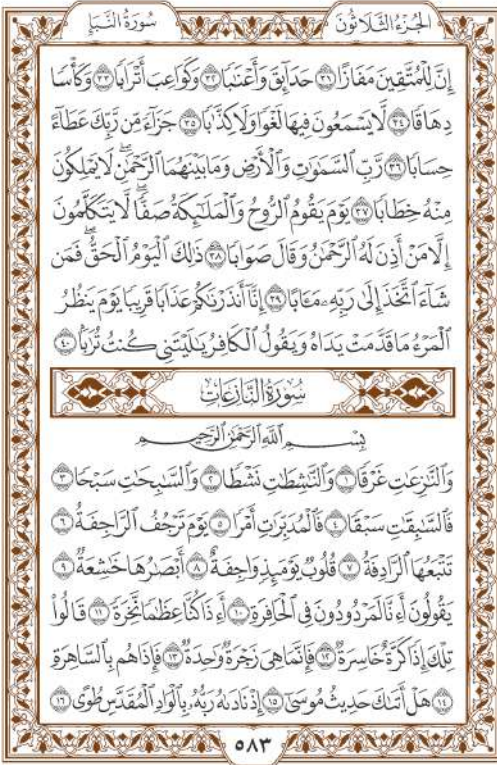 الجُزءُ الثَّلَاثُونَ سُورَةُ النَّبَإِ
إِنَّ لِلْمُتَّقِينَ مَفَازًا ٣١ حَدَآئِقَ وَأَعْنَٰبًا ٣٢ وَكَوَاعِبَ أَتْرَابًا ٣٣ وَكَأْسًا
دِهَاقًا ٣٤ لَّا يَسْمَعُونَ فِيهَا لَغْوًا وَلَا كِذَّٰبًا ٣٥ جَزَآءً مِّن رَّبِّكَ عَطَآءً
حِسَابًا ٣٦ رَّبِّ ٱلسَّمَٰوَٰتِ وَٱلْأَرْضِ وَمَا بَيْنَهُمَا ٱلرَّحْمَٰنِۖ لَا يَمْلِكُونَ
مِنْهُ خِطَابًا ٣٧ يَوْمَ يَقُومُ ٱلرُّوحُ وَٱلْمَلَٰٓئِكَةُ صَفًّاۖ لَّا يَتَكَلَّمُونَ
إِلَّا مَنْ أَذِنَ لَهُ ٱلرَّحْمَٰنُ وَقَالَ صَوَابًا ٣٨ ذَٰلِكَ ٱلْيَوْمُ ٱلْحَقُّۖ فَمَن
شَآءَ ٱتَّخَذَ إِلَىٰ رَبِّهِۦ مَـَٔابًا ٣٩ إِنَّآ أَنذَرْنَٰكُمْ عَذَابًا قَرِيبًا يَوْمَ يَنظُرُ
ٱلْمَرْءُ مَا قَدَّمَتْ يَدَاهُ وَيَقُولُ ٱلْكَافِرُ يَٰلَيْتَنِى كُنتُ تُرَٰبًۢا ٤٠
سُورَةُ النَّازِعَاتِ
بِسْمِ ٱللَّهِ ٱلرَّحْمَٰنِ ٱلرَّحِيمِ
وَٱلنَّٰزِعَٰتِ غَرْقًا ١ وَٱلنَّٰشِطَٰتِ نَشْطًا ٢ وَٱلسَّٰبِحَٰتِ سَبْحًا ٣
فَٱلسَّٰبِقَٰتِ سَبْقًا ٤ فَٱلْمُدَبِّرَٰتِ أَمْرًا ٥ يَوْمَ تَرْجُفُ ٱلرَّاجِفَةُ ٦
تَتْبَعُهَا ٱلرَّادِفَةُ ٧ قُلُوبٌ يَوْمَئِذٍ وَاجِفَةٌ ٨ أَبْصَٰرُهَا خَٰشِعَةٌ ٩
يَقُولُونَ أَءِنَّا لَمَرْدُودُونَ فِى ٱلْحَافِرَةِ ١٠ أَءِذَا كُنَّا عِظَٰمًا نَّخِرَةً ١١ قَالُوا۟
تِلْكَ إِذًا كَرَّةٌ خَاسِرَةٌ ١٢ فَإِنَّمَا هِىَ زَجْرَةٌ وَٰحِدَةٌ ١٣ فَإِذَا هُم بِٱلسَّاهِرَةِ
١٤ هَلْ أَتَىٰكَ حَدِيثُ مُوسَىٰٓ ١٥ إِذْ نَادَىٰهُ رَبُّهُۥ بِٱلْوَادِ ٱلْمُقَدَّسِ طُوًى ١٦
٥٨٣